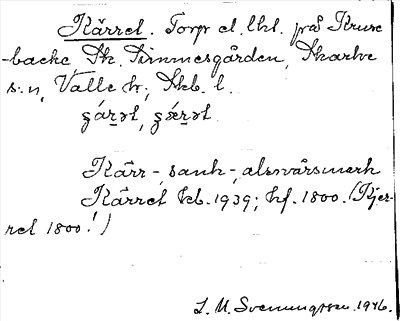 Kärret. Torp el. lht. på Kruse
-backe, St. Simmesgården, Skarke
s:n, Valle hr, Skb. l.
Kärr-, sank-, alsnårsmark
Kärret kb. 1939; hf. 1800. (Kjer-
ret 1800!)
L. M. Svenungsson. 1946.